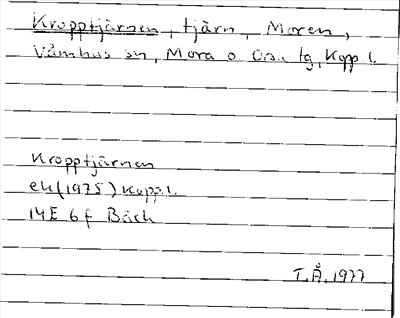 Kropptjärnen, tjärn, Moren,
Våmhus sn, Mora o Orsa tg, Kopp l.
Kropptjärnen
ek (1975) Kopp. l.
14E 6f Bäck
T.Å. 1977